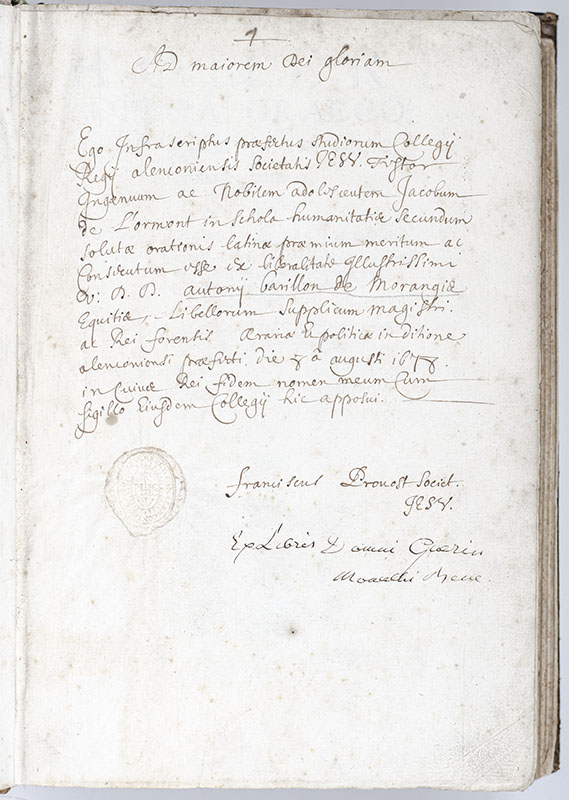 Ad maiorem Dei gloriam
Ego Infra scriptus præfectus studiorum Collegij
Regij alenconiensis Societatis JESV. Testor
Ingenuum ac Nobilem adolescentem Jacobum
de L'ormont in schola humanitatis secundum
solutæ orationis latinæ præmium meritum ac
Consecutum esse ex liberalitate Illustrissimi
D. D. antonij barillon de Morangis
Equitis, Libellorum Supplicum magistri.
ac Rei forensis Ærariæ & politicæ in ditione
alenconiensi præfecti die 8 a augusti 1678.
in Cuius Rei fidem nomen meum Cum
sigillo Eiusdem Collegij hic apposui.
franciscus Provost Societ.
JESV.
Ex Libris Domni Guerin
Monachi